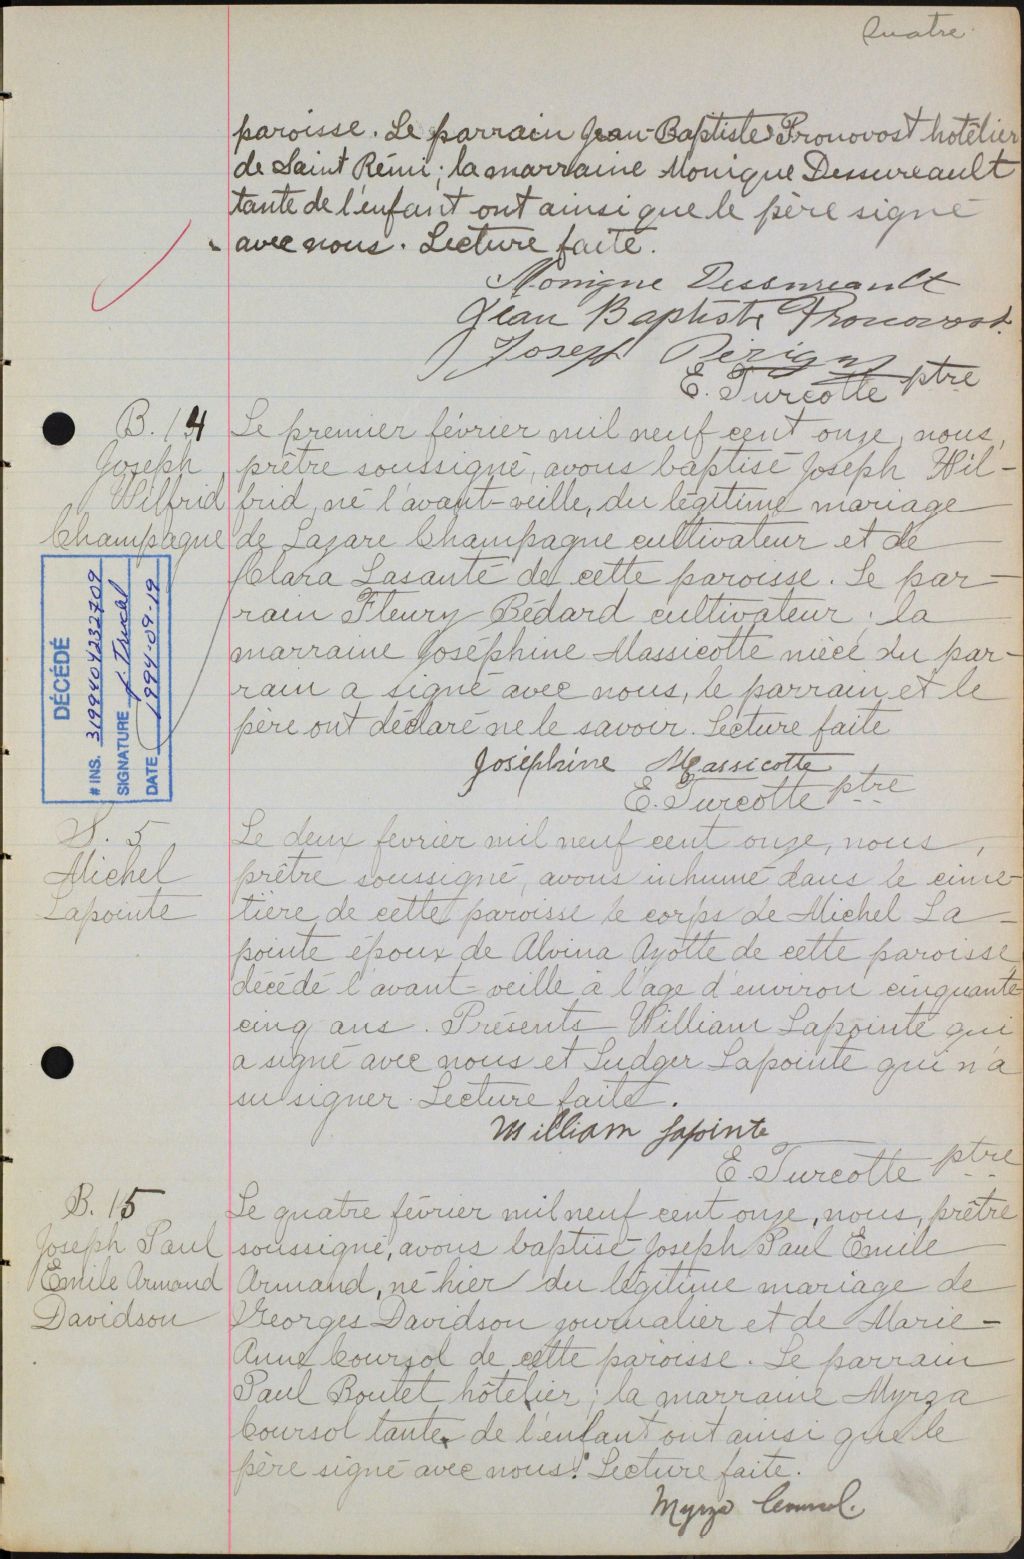 Quatre
paroisse. Le parrain Jean-Baptiste Pronovost hotêlier
de Saint Rémi; la marraine Monique Dessureault
tante de l'enfant ont ainsi que le père signé
avec nous. Lecture faite.
Monique Dessureault
Jean Baptiste Pronovost
Joseph Périgny
E. Turcotte ptre
B. 14
Joseph
Wilfrid
Champagne
Le premier février mil neuf cent onze, nous,
prêtre soussigné, avons baptisé Joseph Wil-
frid, né l'avant-veille, du légitime mariage
de Lazare Champagne cultivateur et de
Clara Lasanté de cette paroisse. Le par-
rain Fleury Bédard cultivateur; la
marraine Joséphine Massicotte nièce du par-
rain a signé avec nous, le parrain et le
père ont déclaré ne le savoir. Lecture faite
Joséphine Massicotte
E. Turcotte ptre
DÉCÉDÉ
# INS. 3199404232709
SIGNATURE
DATE 1994-09-19
S. 5
Michel
Lapointe
Le deux fevrier mil neuf cent onze, nous,
prêtre soussigné, avons inhumé dans le cime-
tière de cette paroisse le corps de Michel La-
pointe époux de Alvina Ayotte de cette paroisse
décédé l'avant-veille à l'age d'environ cinquante-
cinq ans. Présents William Lapointe qui
a signé avec nous et Ludger Lapointe qui n'a
su signer. Lecture faite.
William Lapointe
E. Turcotte ptre
B. 15
Joseph Paul
Emile Armand
Davidson
Le quatre février mil neuf cent onze, nous, prêtre
soussigné, avons baptisé Joseph Paul Emile
Armand, né hier du légitime mariage de
Georges Davidson journalier et de Marie-
Anne Coursol de cette paroisse. Le parrain
Paul Boutet hôtelier; la marraine Myrza
Coursol tante de l'enfant ont ainsi que le
père signé avec nous. Lecture faite.
Myrza Coursol.